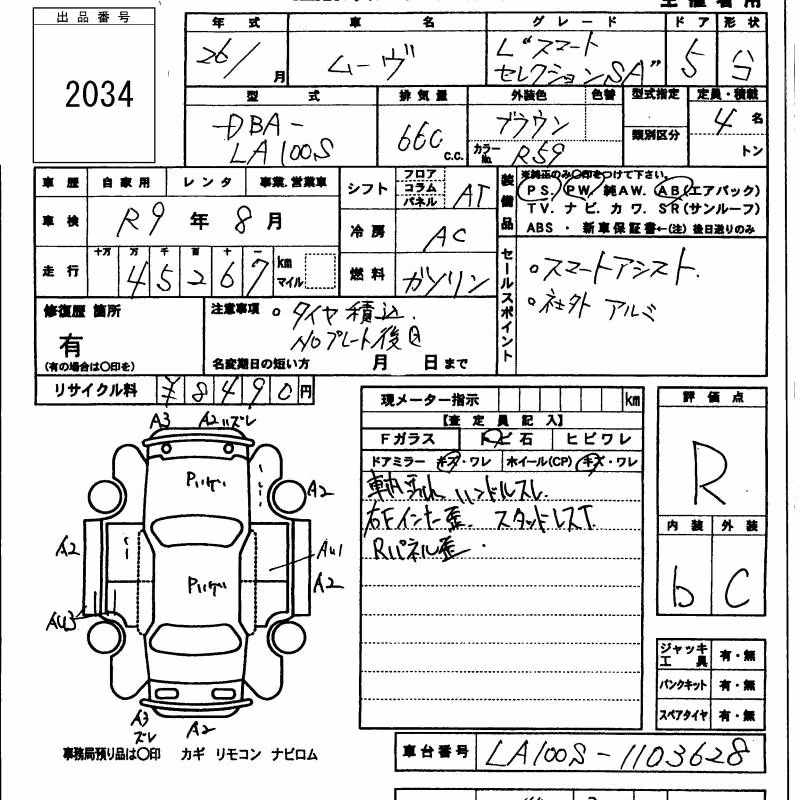 出品番号
2034
年式 車名 グレード ドア 形状
26/ 月 ムーヴ L"スマート セレクションSA" 5 合
型式 排気量 外装色 色替 型式指定 定員・積載
類別区分
DBA-
LA100S 660 c.c. ブラウン カラーNo. R59 4 名
トン
車歴 自家用 レンタ 事業.営業車
シフト フロア コラム パネル AT
装備品 ※純正のみ〇印をつけて下さい。
PS. PW. 純AW. AB(エアバック)
TV. ナビ. カワ. SR(サンルーフ)
ABS ・ 新車保証書←(注) 後日送りのみ
車検 R9 年 8 月
冷房 AC
走行 十万 万 千 百 十 一
45267 km マイル
燃料 ガソリン
セールスポイント
○スマートアシスト.
○社外 アルミ
修復歴 箇所
有
(有の場合は〇印を)
注意事項 ○ タイヤ積込.
NOプレート後日
名変期日の短い方 月 日まで
リサイクル料 ¥8490円
現メーター指示 km
【査定員記入】
Fガラス トビ石 ヒビワレ
ドアミラー キズ・ワレ ホイール(CP) キズ・ワレ
ハンドルスレ
右Fインナー歪. スタッドレスT.
Rパネル歪.
評価点
R
内装 外装
b C
A3 A2 ズレ
A2
A2
A41
A2
AU3
A3
ズレ
A2
ジャッキ 工具 有・無
パンクキット 有・無
スペアタイヤ 有・無
事務局預り品は〇印 カギ リモコン ナビロム
車台番号 LA100S-1103628